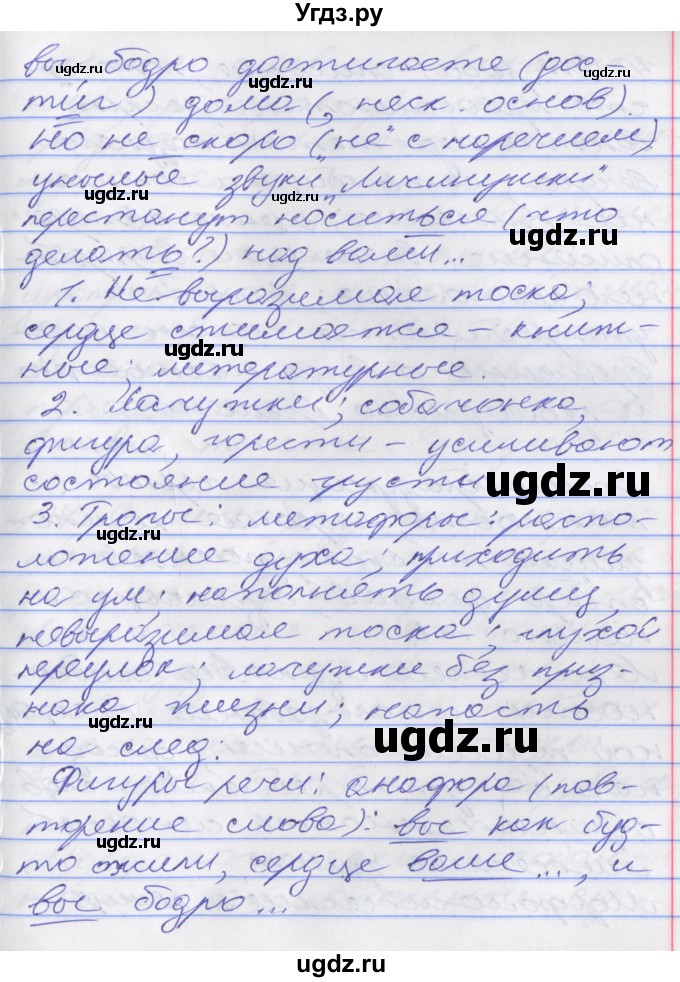 Угдз.ру
вы, бодро достигаете (дос-
тиг) дома (, неск. основ).
Но не скоро („не“ с наречием)
унылые звуки „Личинушки“
перестанут носиться (что
делать?) над вами...
1. Невыразимая тоска;
сердце сжимается – книж-
ные; литературные.
2. Лачужки; собачонка,
фигура, горести – усиливают
состояние грусти
3. Тропы: метафоры: распо-
ложение духа; приходить
на ум; наполнять душу,
невыразимая тоска; глухой
переулок; лачужки без приз-
нака жизни; напасть
на след.
Фигуры речи: анафора (пов-
торение слова): вы как буд-
то жили, сердце ваше..., и
вы бодро...
ugdz.ru
ugdz.ru
ugdz.ru
ugdz.ru
ugdz.ru
ugdz.ru
ugdz.ru
ugdz.ru
ugdz.ru
ugdz.ru
ugdz.ru
ugdz.ru